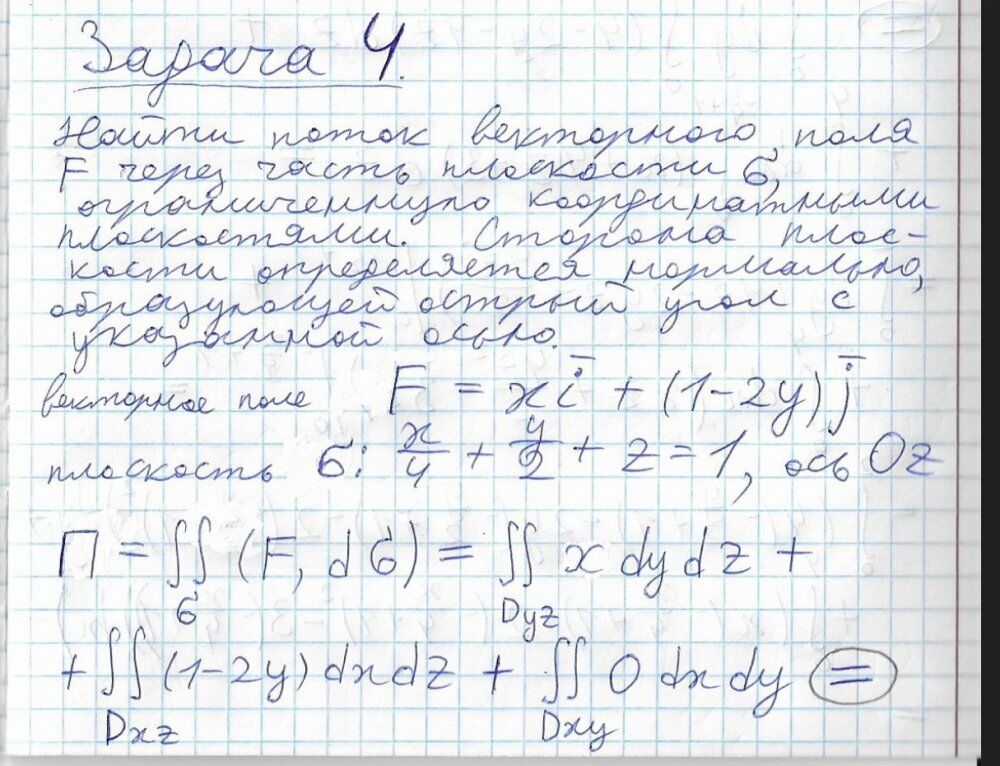 Задача 4.
Найти поток векторного поля
F через часть плоскости σ,
ограниченную координатными
плоскостями. Сторона плос-
кости определяется нормалью,
образующей острый угол с
указанной осью.
векторное поле F = x i̅ + (1-2y) j̅
плоскость σ: x/4 + y/2 + z = 1, ось Oz
П = ∬_σ (F, dσ) = ∬_Dyz x dy dz +
+ ∬_Dxz (1-2y) dx dz + ∬_Dxy 0 dx dy =